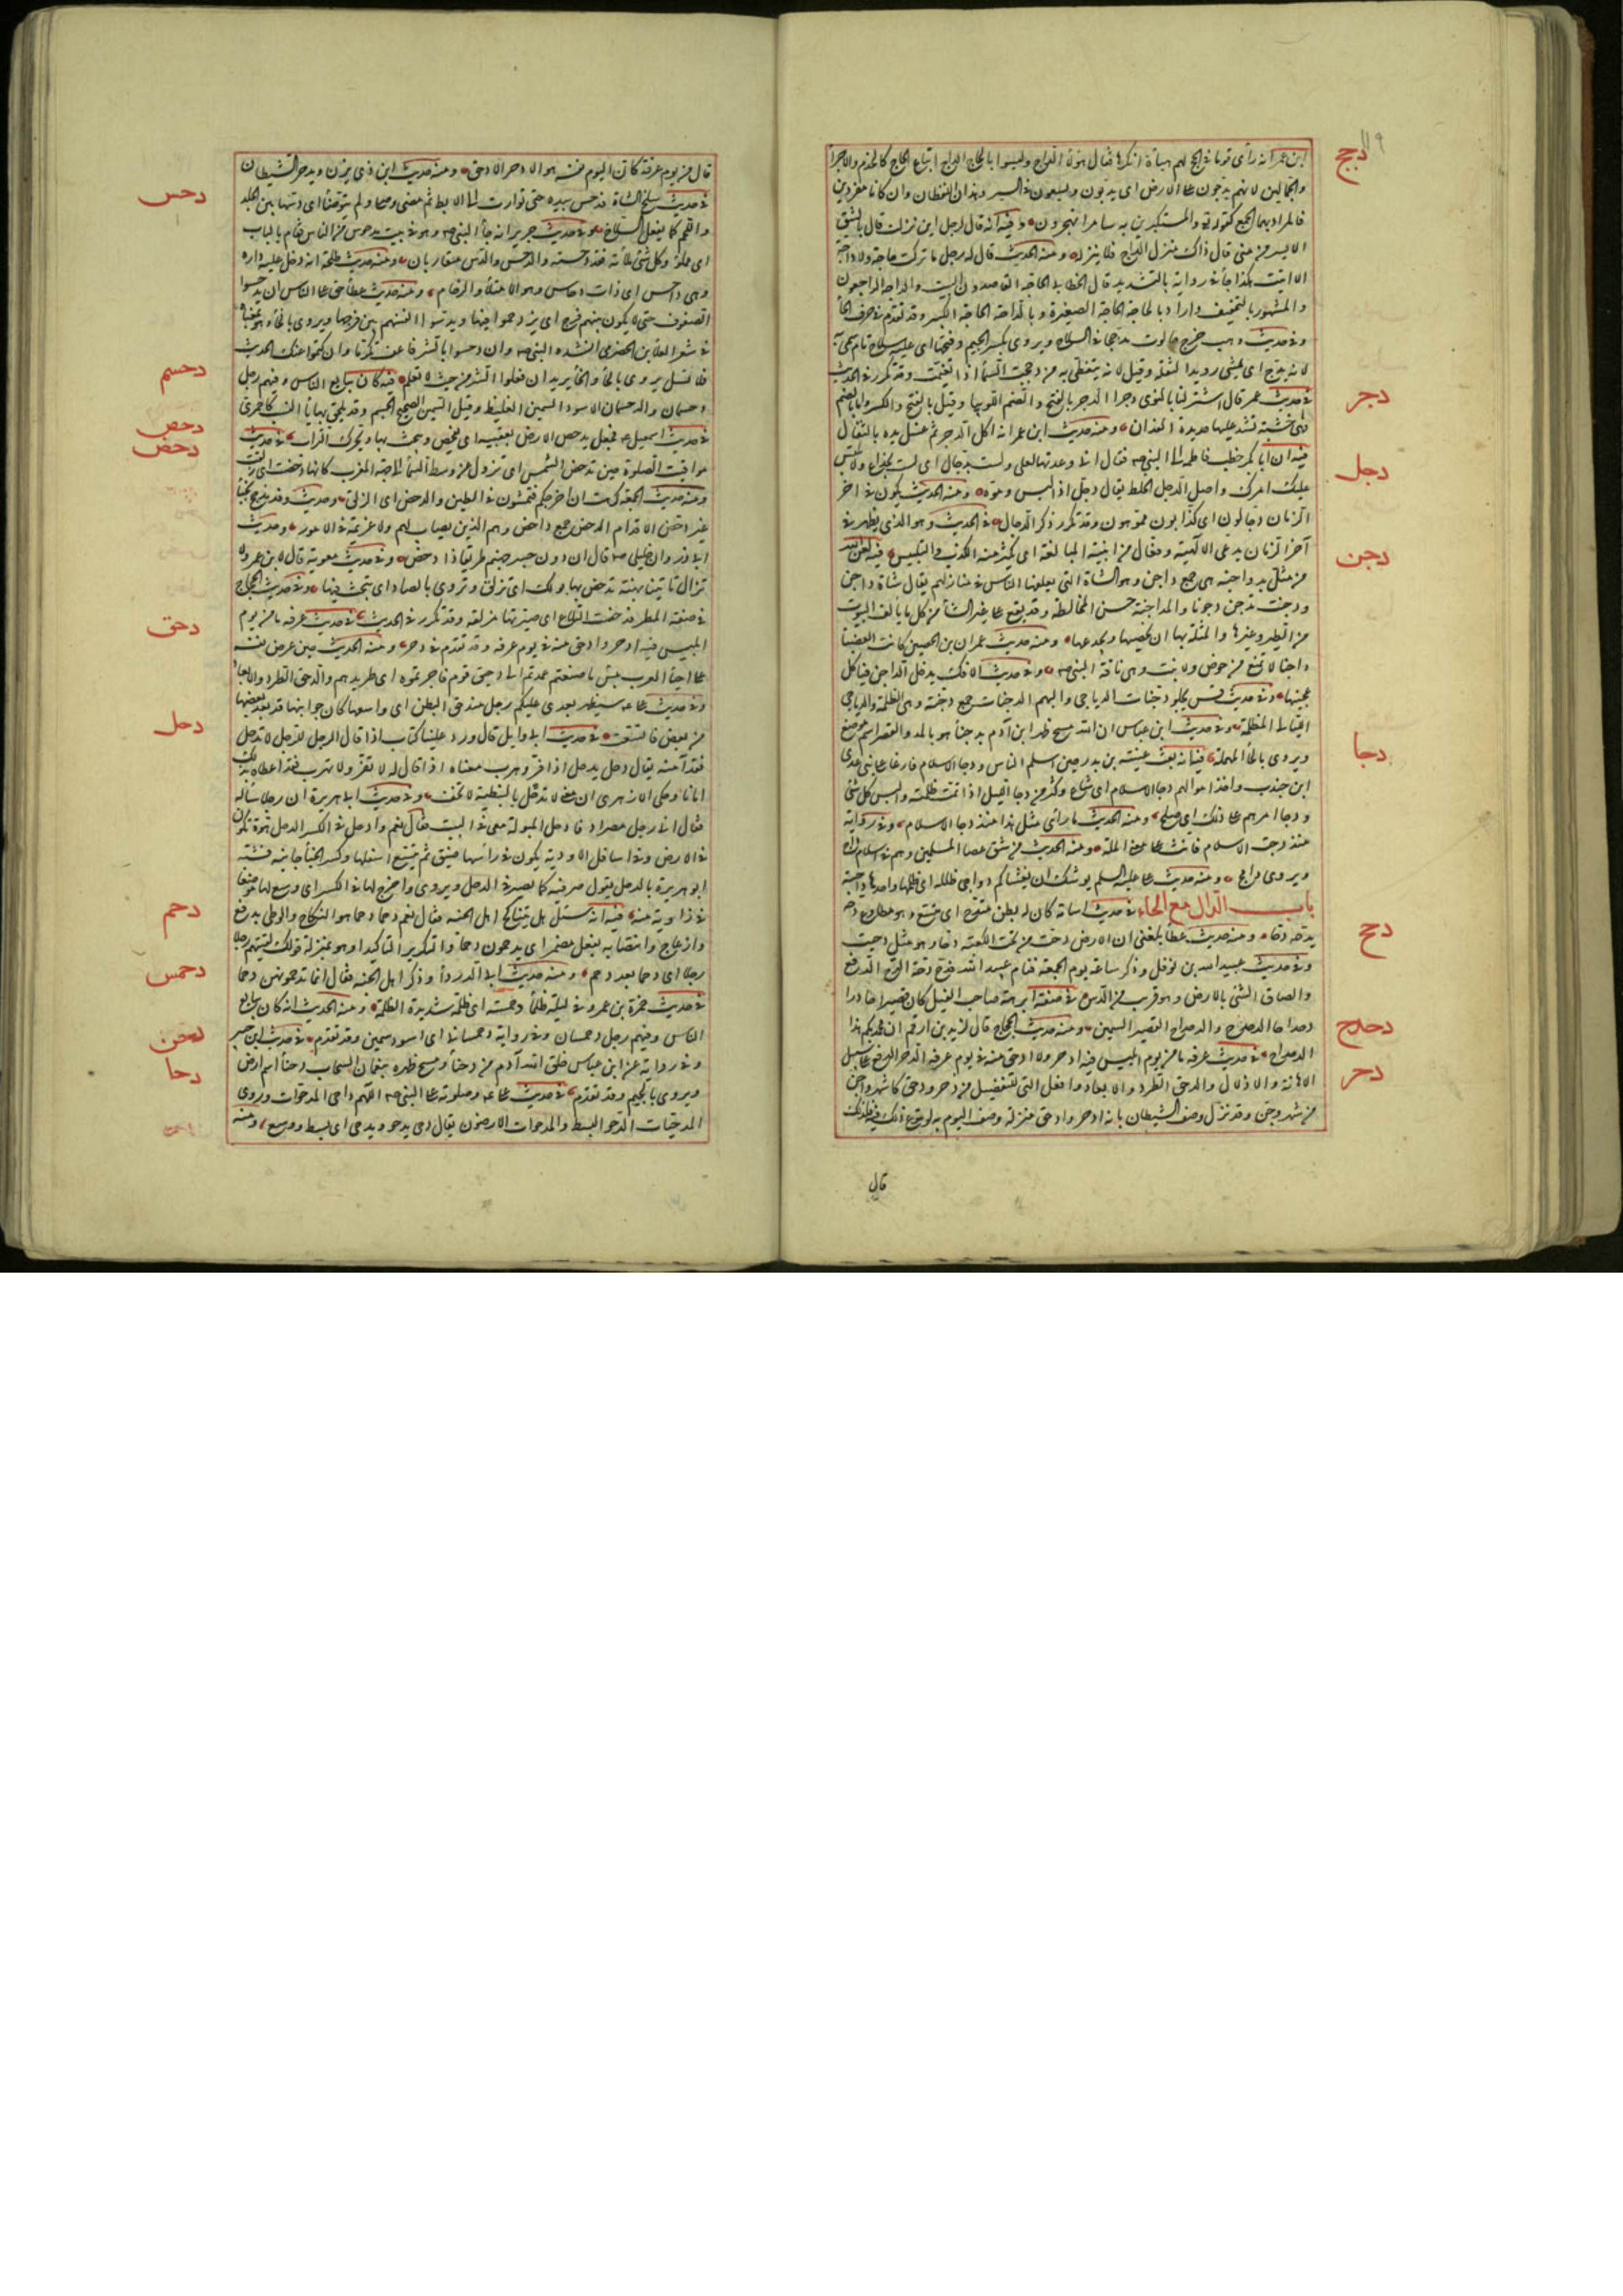 ١١٩
دجج
ابن عمر انه رأى قوما في الحج لهم هيأة انكرها فقال هؤلاء الداج وليسوا بالحاج الداج اتباع الحاج كالخدم والاجراء
والجمالين لانهم يدجون على الارض اى يدبون ويسعون في السير وهذان اللفظان وان كانا مفردين
فالمراد بهما الجمع كقوله تع مستكبرين به سامرا تهجرون وفيه انه قال لرجل اين نزلت قال بالشق
الايسر من منى قال ذاك منزل الداج فلا تنزله ومنه الحديث قال له رجل ما تركت حاجة ولا داجة
الا اتيت هكذا جاء في رواية بالتشديد قال الخطابى الحاجة القاصدون البيت والداجة الراجعون
والمشهور بالتخفيف واراد بالحاجة الحاجة الصغيرة وبالداجة الحاجة الكبيرة وقد تقدم في حرف الحاء
وفي حديث وهب خرج جالوت مدججا في السلاح ويروى بكسر الجيم وفتحها اى عليه سلاح تام سمى به
لانه يدج اى يمشى رويدا لثقله وقيل لانه يتغطى به من دججت السماء اذا تغيمت وقد تكرر في الحديث
دجر
في حديث عمر قال اشتر لنا بالنوى دجرا الدجر بالفتح والضم اللوبيا وقيل بالفتح والكسر واما بالضم
فهى خشبة تشد عليها حديدة الفدان ومنه حديث ابن عمر انه اكل الدجر ثم غسل يده بالثفال
دجل
فيه ان ابا بكر خطب فاطمة الى النبى صه فقال انى وعدتها لعلى ولست بدجال اى لست بخداع ولا ملبس
عليك امرك واصل الدجل الخلط يقال دجل اذا لبس وموه ومنه الحديث يكون في آخر
الزمان دجالون اى كذابون مموهون وقد تكرر ذكر الدجال في الحديث وهو الذى يظهر في
آخر الزمان يدعى الالهية وفعال من ابنية المبالغة اى يكثر منه الكذب والتلبيس فيه لعن الله
دجن
من مثل بدواجنه هى جمع داجن وهو الشاة التى يعلفها الناس في منازلهم يقال شاة داجن
ودجنت تدجن دجونا والمداجنة حسن المخالطة وقد يقع على غير الشاء من كل ما يألف البيوت
من الطير وغيرها والمثلة بها ان يخصيها ويجدعها ومنه حديث عمران بن الحصين كانت العضباء
داجنا لا تمنع من حوض ولا نبت وهى ناقة النبى صه وفي حديث الافك يدخل الداجن فيأكل
عجينها وفي حديث قس يجلو دجنات الدياجى والبهم الدجنات جمع دجنة وهى الظلمة والدياجى
الليالى المظلمة وفي حديث ابن عباس ان الله مسح ظهر ابن آدم بدجناء هو بالمد والقصر اسم موضع
دجا
ويروى بالحاء المهملة فيه انه بعث عيينة بن بدر حين اسلم الناس ودجا الاسلام فاغار على بنى عدى
ابن جندب واخذ اموالهم دجا الاسلام اى شاع وكثر من دجا الليل اذا تمت ظلمته والبس كل شئ
ودجا امرهم على ذلك اى صلح ومنه الحديث ما رأى مثل هذا منذ دجا الاسلام وفي رواية
منذ دجت الاسلام فانث على معنى الملة ومنه الحديث من شق عصا المسلمين وهم في اسلام داج
ويروى دامج ومنه حديث على عليه السلم يوشك ان يغشاكم دواجى ظلله اى ظلمها واحدها داجية
باب الدال مع الحاء في حديث اسامة كان له بطن مندح اى متسع وهو مطاوع دحه
دحح
يدحه دحا ومنه حديث عطا بلغنى ان الارض دحت من تحت الكعبة دحا وهو مثل دحيت
وفي حديث عبيد الله بن نوفل وذكر ساعة يوم الجمعة فنام عبيد الله فدح دحة الدح الدفع
والصاق الشئ بالارض وهو قريب من الدس في صفة ابرهة صاحب الفيل كان قصيرا حادرا
دحدح
دحداحا الدحدح والدحداح القصير السمين ومنه حديث الحجاج قال لزيد بن ارقم ان محمديكم هذا
الدحداح في حديث عرفة ما من يوم ابليس فيه ادحر ولا ادحق منه في يوم عرفة الدحر الدفع على سبيل
دحر
الاهانة والاذلال والدحق الطرد والابعاد وافعل التى للتفضيل من دحر ودحق كاشهر واجن
من شهر وجن وقد نزل وصف الشيطان بانه ادحر وادحق منزلة وصف اليوم به لوقوع ذلك فيه فلذلك
قال
قال من يوم عرفة كان اليوم نفسه هو الادحر الادحق ومنه حديث ابن ذى يزن ويدحر الشيطان
دحس
في حديث سلخ الشاة فدحس بيده حتى توارت الى الابط ثم مضى وصلى ولم يتوضأ اى دسها بين الجلد
واللحم كما يفعل السلاخ وفي حديث جرير انه جاء النبى صه وهو في بيت مدحوس من الناس فقام بالباب
اى مملوء وكل شئ ملأته فقد دحسته والدحس والدس متقاربان ومنه حديث طلحة انه دخل عليه داره
وهى دحاس اى ذات دحاس وهو الامتلاء والزحام ومنه حديث عطا حق على الناس ان يدحسوا
الصفوف حتى لا يكون بينهم فرج اى يزدحموا فيها ويدسوا انفسهم بين فرجها ويروى بالخاء وهو بمعناه
في شعر العلاء بن الحضرمى انشده النبى صه وان دحسوا بالشر فاعف تكرما وان كتموا عنك الحديث
فلا تسل يروى بالحاء والخاء يريد ان فعلوا الشر من حيث لا تعلم فيه كان يبايع الناس وفيهم رجل
دحسم
دحسمان والدحسمان الاسود السمين الغليظ وقيل السمين الصحيح الجسم وقد يلحق بها ياء النسب كاحمرى
دحص
في حديث اسمعيل عه فجعل يدحص الارض بعقبيه اى يفحص ويبحث بها ويحرك التراب في حديث
دحض
مواقيت الصلوة حين تدحض الشمس اى تزول عن وسط السماء الى جهة المغرب كانها دحضت اى زلقت
ومنه حديث الجمعة كرهت ان اخرجكم فتمشون في الطين والدحض اى الزلق وحديث وفد مذحج نجباء
غير دحض الاقدام الدحض جمع داحض وهم الذين لا ثبات لهم ولا عزيمة في الامور وحديث
ابى ذر وان خليلى صه قال ان دون جسر جهنم طريقا ذا دحض وفي حديث معوية قال لابن عمرو لا
تزال تأتينا بهنة تدحض بها في بولك اى تزلق وتروى بالصاد اى تبحث فيها وفي حديث الحجاج
في صفة المطر فدحضت التلاع اى صيرتها مزلقة وقد تكرر في الحديث في حديث عرفة ما من يوم
دحق
ابليس فيه ادحر وادحق منه في يوم عرفة وقد تقدم في دحر ومنه الحديث حين عرض نفسه
على احياء العرب بئس ما صنعتم عمدتم الى دحيق قوم فاجرتموه اى طريدهم والدحق الطرد والابعاد
وفي حديث على عه سيظهر بعدى عليكم رجل مندحق البطن اى واسعها كان جوانبها قد بعد بعضها
من بعض فاتسعت في حديث ابى وايل قال ورد علينا كتاب اذا قال الرجل للرجل لا تدحل
دحل
فقد آمنه يقال دحل يدحل اذا فر وهرب معناه اذا قال له لا تفر ولا تهرب فقد اعطاه بذلك
امانا وحكى الازهرى ان معنى لا تدحل بالنبطية لا تخف وفي حديث ابى هريرة ان رجلا سأله
فقال انى رجل مصراد فادخل المبولة معى في البيت فقال نعم وادحل في الكسر الدحل هوة تكون
في الارض وفي اسافل الاودية يكون في رأسها ضيق ثم يتسع اسفلها وكسر الخباء جانبه فشبه
ابو هريرة بالدحل يقول صر فيه كما يصير في الدحل ويروى وادح لها في الكسر اى وسع لها موضعا
في زاوية منه فيه انه سئل هل يتناكح اهل الجنة فقال نعم دحما دحما هو النكاح والوطى بدفع
دحم
وازعاج وانتصابه بفعل مضمر اى يدحمون دحما والتكرير للتاكيد او هو بمنزلة قولك لقيتهم رجلا
رجلا اى دحما بعد دحم ومنه حديث ابى الدرداء وذكر اهل الجنة فقال انما تدحمونهن دحما
دحمس
في حديث حمزة بن عمرو في ليلة ظلماء دحمسة اى ظلمة شديدة الظلمة ومنه الحديث انه كان يبايع
الناس وفيهم رجل دحمسان وفي رواية دحمسانى اى اسود سمين وقد تقدم في حديث ابن جبير
دحن
وفي رواية عن ابن عباس خلق الله آدم من دحناء ومسح ظهره بنعمان السحاب دحناء اسم ارض
دحا
ويروى بالجيم وقد تقدم في حديث على عه وصلوته على النبى صه اللهم داحى المدحوات وروى
المدحيات الدحو البسط والمدحوات الارضون يقال دحى يدحو ويدحى اى بسط ووسع ومنه